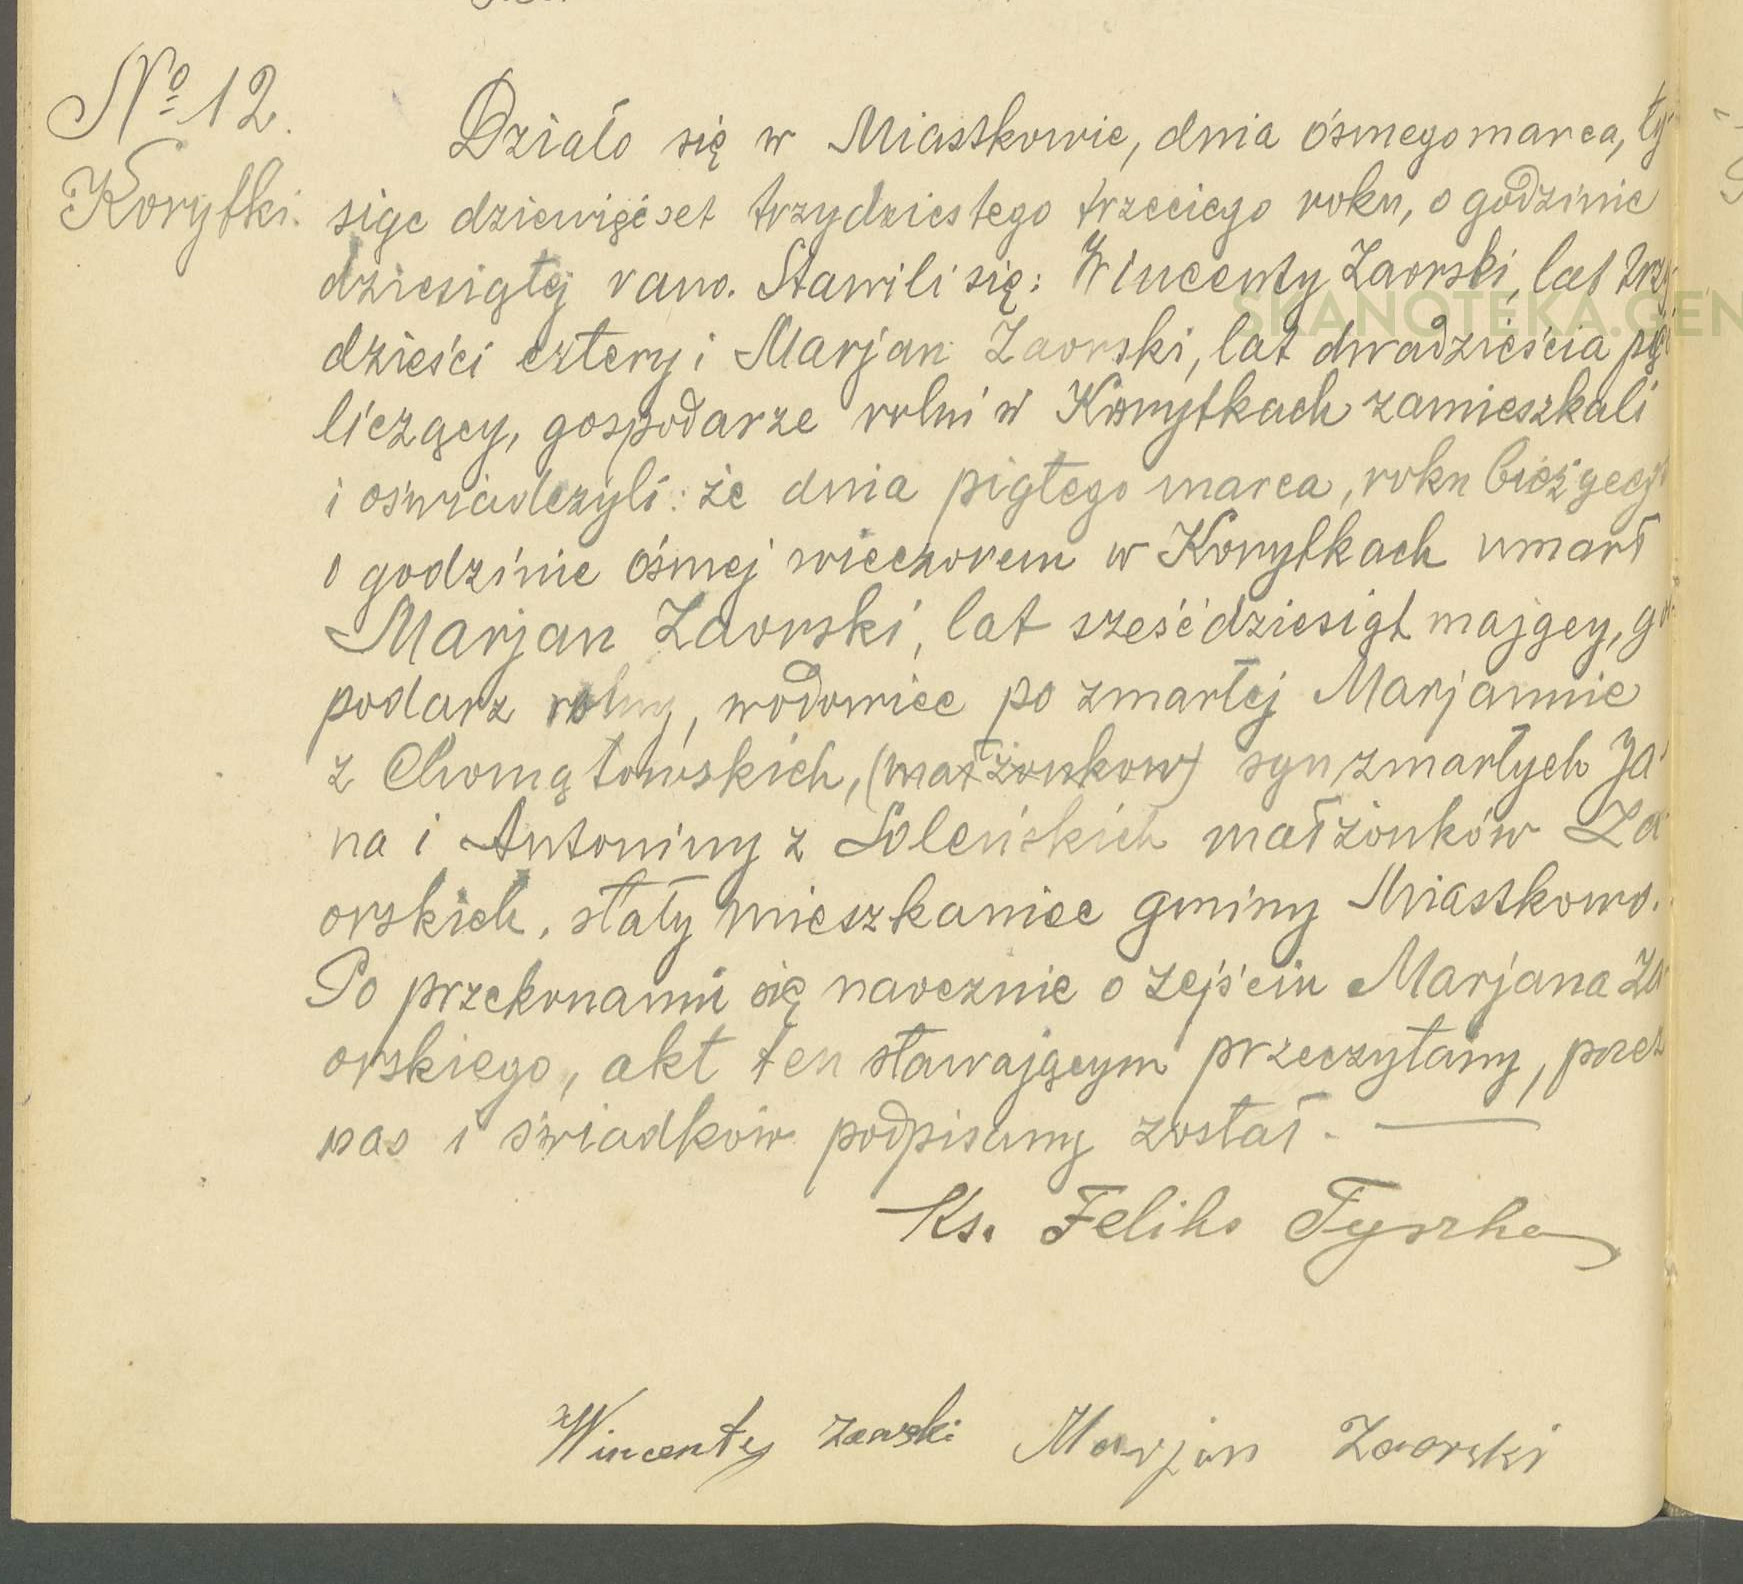 No 12.
Korytki.
Działo się w Miastkowie, dnia ósmego marca, ty-
siąc dziewięćset trzydziestego trzeciego roku, o godzinie
dziesiątej rano. Stawili się: Wincenty Zaorski, lat trzy
dzieści cztery i Marjan Zaorski, lat dwadzieścia pię
liczący, gospodarze rolni w Korytkach zamieszkali
i oświadczyli: że dnia piątego marca, roku bieżącego
o godzinie ósmej wieczorem w Korytkach umarł
Marjan Zaorski, lat sześćdziesiąt mający, go
podarz rolny, wdowiec po zmarłej Marjannie
z Chomątowskich, (małżonków) syn zmarłych Ja
na i Antoniny z Soleńskich małżonków Za
orskich, stały mieszkaniec gminy Miastkowo.
Po przekonaniu się naocznie o zejściu Marjana Za
orskiego, akt ten stawającym przeczytany, przez
nas i świadków podpisany został. —
Ks. Feliks Tyszka
Wincenty Zaorski Marjan Zaorski
SKANOTEKA.GEN